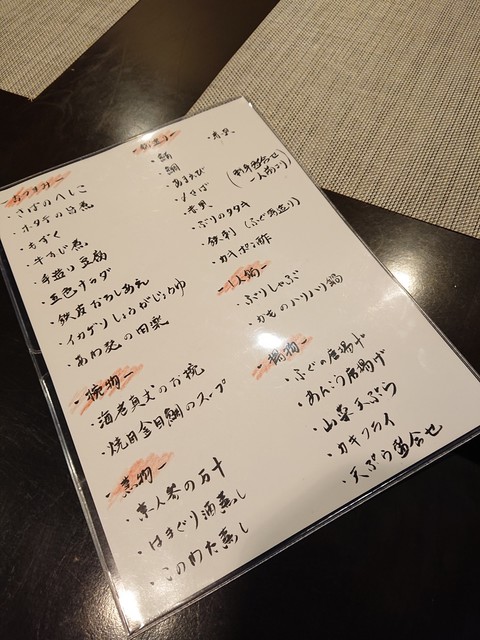 おつまみ
・さばのへしこ
・ホタテの旨煮
・もずく
・牛すじ煮
・手造り豆腐
・五色サラダ
・鉄皮おろしあえ
・イカゲソしょうがじょうゆ
・あわ麸の田楽
- 椀物 -
・海老真丈のお椀
・焼目金目鯛のスープ
- 蒸物 -
・京人参の万十
・はまぐり酒蒸し
・このわた蒸し
・鮪
・鯛
・あまえび
・〆さば
・赤貝
(お刺身盛合せ
一人前より)
・ぶりのタタキ
・鉄刺 (ふぐ薄造り)
・カキポン酢
- 1人鍋 -
・ぶりしゃぶ
・かものハリハリ鍋
- 揚物 -
・ふぐの唐揚げ
・あんこう唐揚げ
・山菜天ぷら
・カキフライ
・天ぷら盛合せ